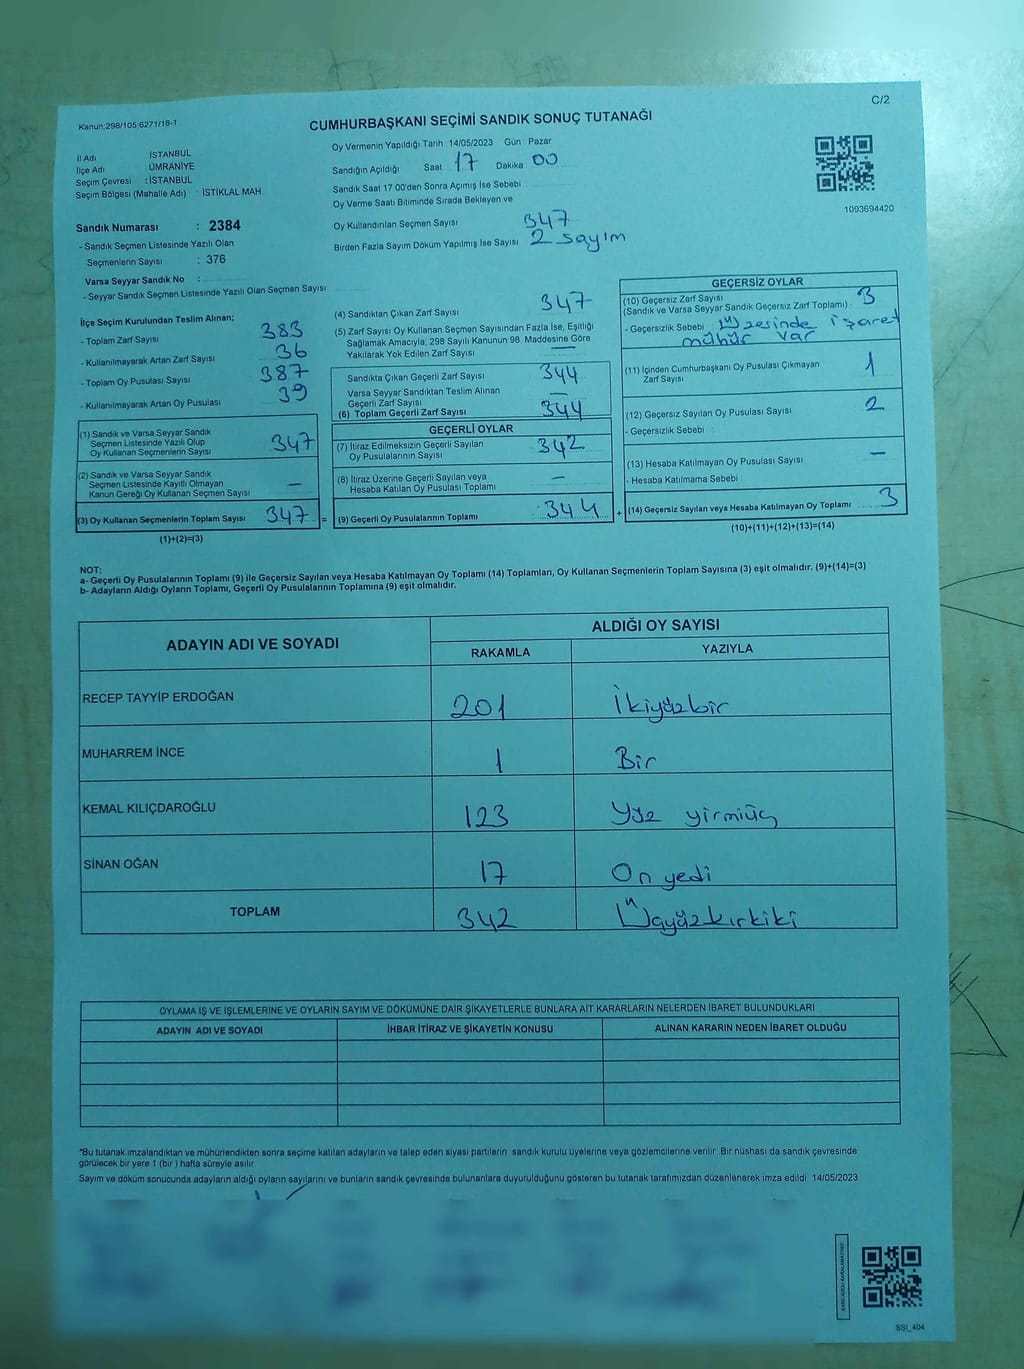 C/2
Kanun:298/105;6271/18-1
CUMHURBAŞKANI SEÇİMİ SANDIK SONUÇ TUTANAĞI
İl Adı İSTANBUL
İlçe Adı ÜMRANİYE
Seçim Çevresi : İSTANBUL
Seçim Bölgesi (Mahalle Adı) : İSTİKLAL MAH.
Sandık Numarası : 2384
- Sandık Seçmen Listesinde Yazılı Olan
Seçmenlerin Sayısı : 376
Varsa Seyyar Sandık No :
- Seyyar Sandık Seçmen Listesinde Yazılı Olan Seçmen Sayısı
Oy Vermenin Yapıldığı Tarih 14/05/2023 Gün : Pazar
Sandığın Açıldığı Saat 17 Dakika 00
Sandık Saat 17:00'den Sonra Açımış İse Sebebi
Oy Verme Saati Bitiminde Sırada Bekleyen ve
Oy Kullandırılan Seçmen Sayısı 347
Birden Fazla Sayım Döküm Yapılmış İse Sayısı 2 sayım
1093694420
İlçe Seçim Kurulundan Teslim Alınan;
- Toplam Zarf Sayısı 383
- Kullanılmayarak Artan Zarf Sayısı 36
- Toplam Oy Pusulası Sayısı 387
- Kullanılmayarak Artan Oy Pusulası 39
(1) Sandık ve Varsa Seyyar Sandık
Seçmen Listesinde Yazılı Olup
Oy Kullanan Seçmenlerin Sayısı 347
(2) Sandık ve Varsa Seyyar Sandık
Seçmen Listesinde Kayıtlı Olmayan
Kanun Gereği Oy Kullanan Seçmen Sayısı —
(3) Oy Kullanan Seçmenlerin Toplam Sayısı 347 =
(1)+(2)=(3)
(4) Sandıktan Çıkan Zarf Sayısı 347
(5) Zarf Sayısı Oy Kullanan Seçmen Sayısından Fazla İse, Eşitliği
Sağlamak Amacıyla; 298 Sayılı Kanunun 98. Maddesine Göre
Yakılarak Yok Edilen Zarf Sayısı —
Sandıkta Çıkan Geçerli Zarf Sayısı 344
Varsa Seyyar Sandıktan Teslim Alınan
Geçerli Zarf Sayısı —
(6) Toplam Geçerli Zarf Sayısı 344
GEÇERLİ OYLAR
(7) İtiraz Edilmeksizin Geçerli Sayılan
Oy Pusulalarının Sayısı 342
(8) İtiraz Üzerine Geçerli Sayılan veya
Hesaba Katılan Oy Pusulası Toplamı —
(9) Geçerli Oy Pusulalarının Toplamı : 344 +
GEÇERSİZ OYLAR
(10) Geçersiz Zarf Sayısı
(Sandık ve Varsa Seyyar Sandık Geçersiz Zarf Toplamı) 3
- Geçersizlik Sebebi : üzerinde işaret
mühür var
(11) İçinden Cumhurbaşkanı Oy Pusulası Çıkmayan
Zarf Sayısı 1
(12) Geçersiz Sayılan Oy Pusulası Sayısı 2
- Geçersizlik Sebebi :
(13) Hesaba Katılmayan Oy Pusulası Sayısı —
- Hesaba Katılmama Sebebi :
(14) Geçersiz Sayılan veya Hesaba Katılmayan Oy Toplamı 3
(10)+(11)+(12)+(13)=(14)
NOT:
a- Geçerli Oy Pusulalarının Toplamı (9) ile Geçersiz Sayılan veya Hesaba Katılmayan Oy Toplamı (14) Toplamları, Oy Kullanan Seçmenlerin Toplam Sayısına (3) eşit olmalıdır. (9)+(14)=(3)
b- Adayların Aldığı Oyların Toplamı, Geçerli Oy Pusulalarının Toplamına (9) eşit olmalıdır.
ADAYIN ADI VE SOYADI ALDIĞI OY SAYISI
RAKAMLA YAZIYLA
RECEP TAYYİP ERDOĞAN 201 İkiyüzbir
MUHARREM İNCE 1 Bir
KEMAL KILIÇDAROĞLU 123 Yüz yirmiüç
SİNAN OĞAN 17 On yedi
TOPLAM 342 Üçyüzkırkiki
OYLAMA İŞ VE İŞLEMLERİNE VE OYLARIN SAYIM VE DÖKÜMÜNE DAİR ŞİKAYETLERLE BUNLARA AİT KARARLARIN NELERDEN İBARET BULUNDUKLARI
ADAYIN ADI VE SOYADI İHBAR İTİRAZ VE ŞİKAYETİN KONUSU ALINAN KARARIN NEDEN İBARET OLDUĞU
*Bu tutanak imzalandıktan ve mühürlendikten sonra seçime katılan adayların ve talep eden siyasi partilerin sandık kurulu üyelerine veya gözlemcilerine verilir. Bir nüshası da sandık çevresinde
görülecek bir yere 1 (bir) hafta süreyle asılır.
Sayım ve döküm sonucunda adayların aldığı oyların sayılarını ve bunların sandık çevresinde bulunanlara duyurulduğunu gösteren bu tutanak tarafımızdan düzenlenerek imza edildi. 14/05/2023
KAREKODU KARALAMAYINIZ!
SSI_404